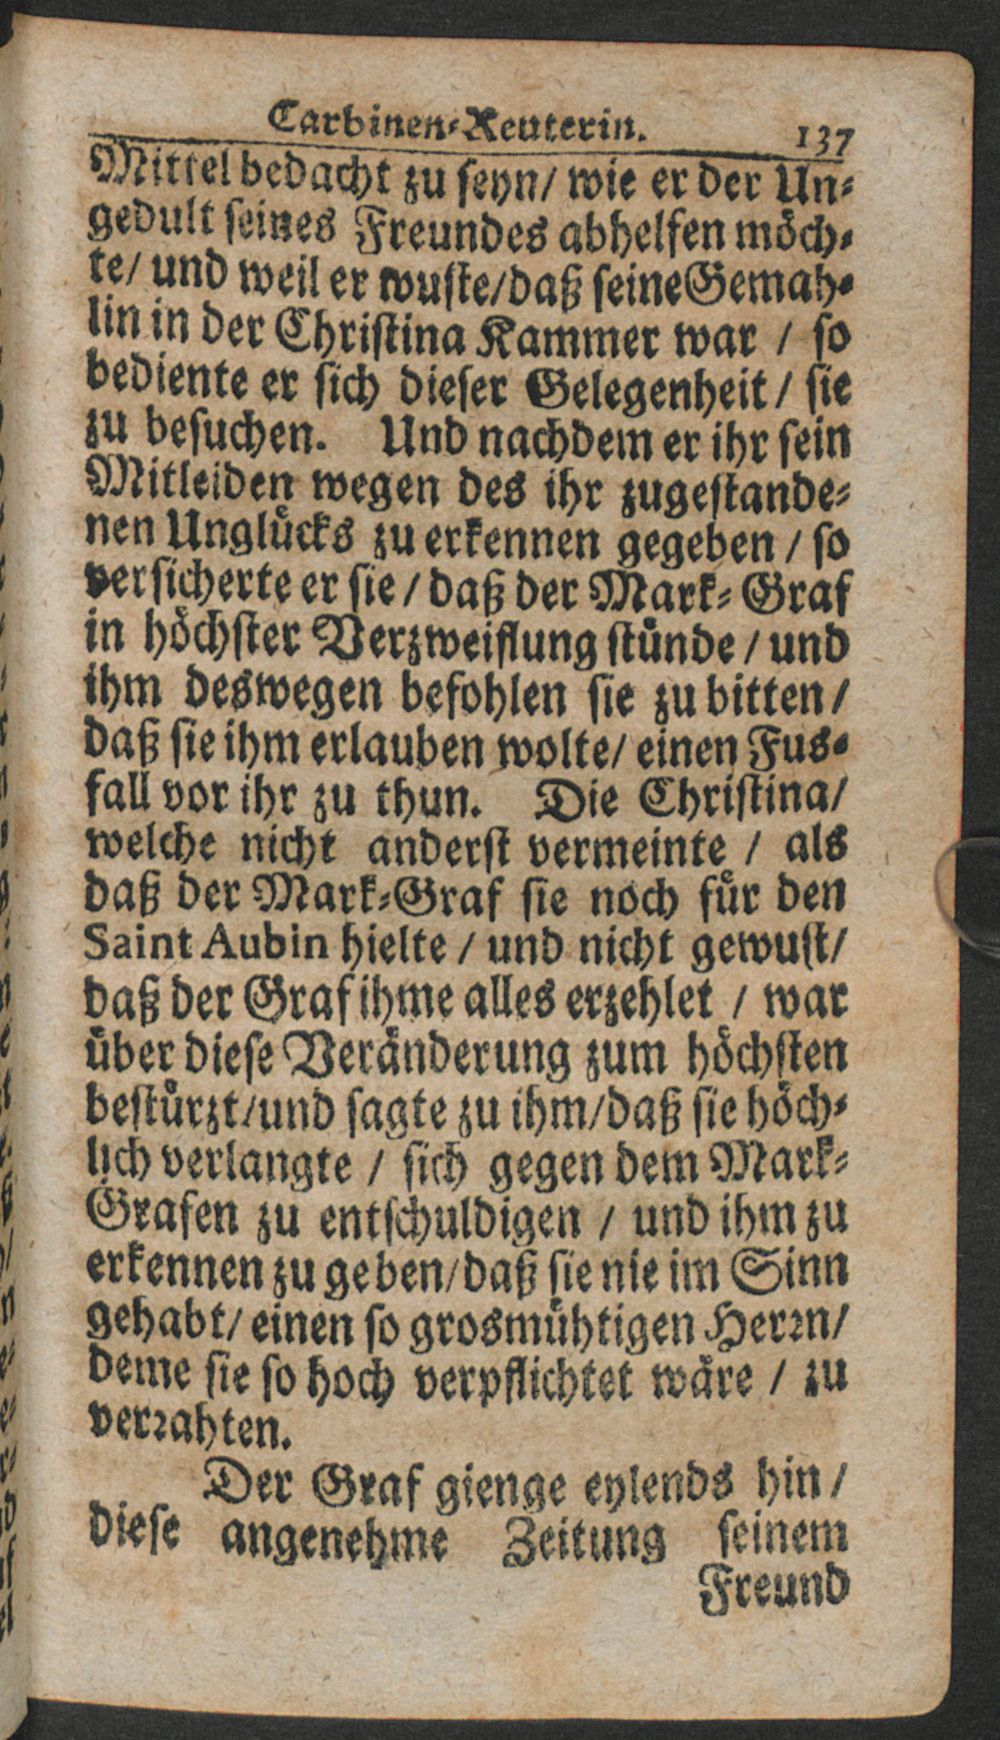 Carbinen-Reuterin. 137
Mittel bedacht zu seyn/ wie er der Un-
gedult seines Freundes abhelfen möch-
te/ und weil er wuste/ daß seine Gemah-
lin in der Christina Kammer war / so
bediente er sich dieser Gelegenheit / sie
zu besuchen. Und nachdem er ihr sein
Mitleiden wegen des ihr zugestande-
nen Unglücks zu erkennen gegeben / so
versicherte er sie / daß der Mark-Graf
in höchster Verzweiflung stünde / und
ihm deswegen befohlen sie zu bitten /
daß sie ihm erlauben wolte/ einen Fus-
fall vor ihr zu thun. Die Christina/
welche nicht anderst vermeinte / als
daß der Mark-Graf sie noch für den
Saint Aubin hielte / und nicht gewust/
daß der Graf ihme alles erzehlet / war
über diese Veränderung zum höchsten
bestürzt/ und sagte zu ihm/ daß sie höch-
lich verlangte / sich gegen dem Mark-
Grafen zu entschuldigen / und ihm zu
erkennen zu geben/ daß sie nie im Sinn
gehabt/ einen so grosmühtigen Herrn/
deme sie so hoch verpflichtet wäre / zu
verrahten.
Der Graf gienge eylends hin /
diese angenehme Zeitung seinem
Freund